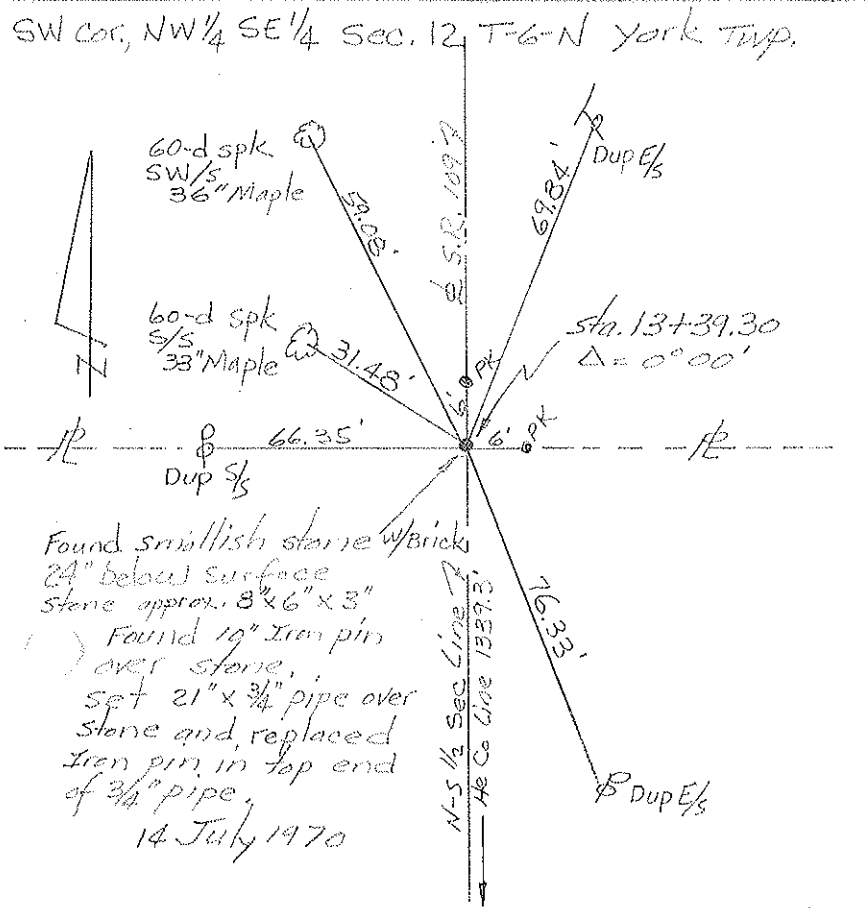 SW cor., NW 1/4 SE 1/4 Sec. 12 T-6-N York Twp.
60-d spk
SW/s
36" Maple
59.08'
℄ S.R. 109
69.84'
Dup E/s
N
60-d spk
S/s
33" Maple
31.48'
PK
6'
sta. 13+39.30
Δ = 0°00'
℄
66.35'
6'
PK
℄
Dup S/s
Found smallish stone w/Brick
24" below surface
stone approx. 8"x6"x3"
Found 10" Iron pin
over stone.
set 21" x 3/4" pipe over
stone and replaced
Iron pin in top end
of 3/4" pipe.
14 July 1970
N-S 1/2 Sec Line
He Co Line 1339.3'
76.33'
Dup E/s